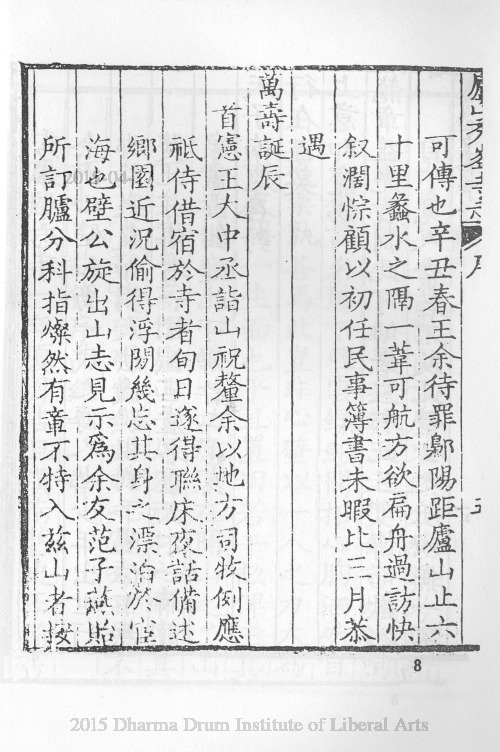 可傳也辛丑春王余待罪鄡陽距廬山止六
十里蠡水之隅一葦可航方欲扁舟過訪快
叙濶悰顧以初任民事簿書未暇比三月恭
遇
萬壽誕辰
首憲王大中丞詣山祝釐余以地方司牧例應
祗侍借宿於寺者旬日遂得聯床夜話備述
鄉園近況偷得浮閒幾忘其身之漂泊於宦
海也壁公旋出山志見示爲余友范子燕貽
所訂臚分科指燦然有章不特入茲山者按
序
五
8
2015 Dharma Drum Institute of Liberal Arts